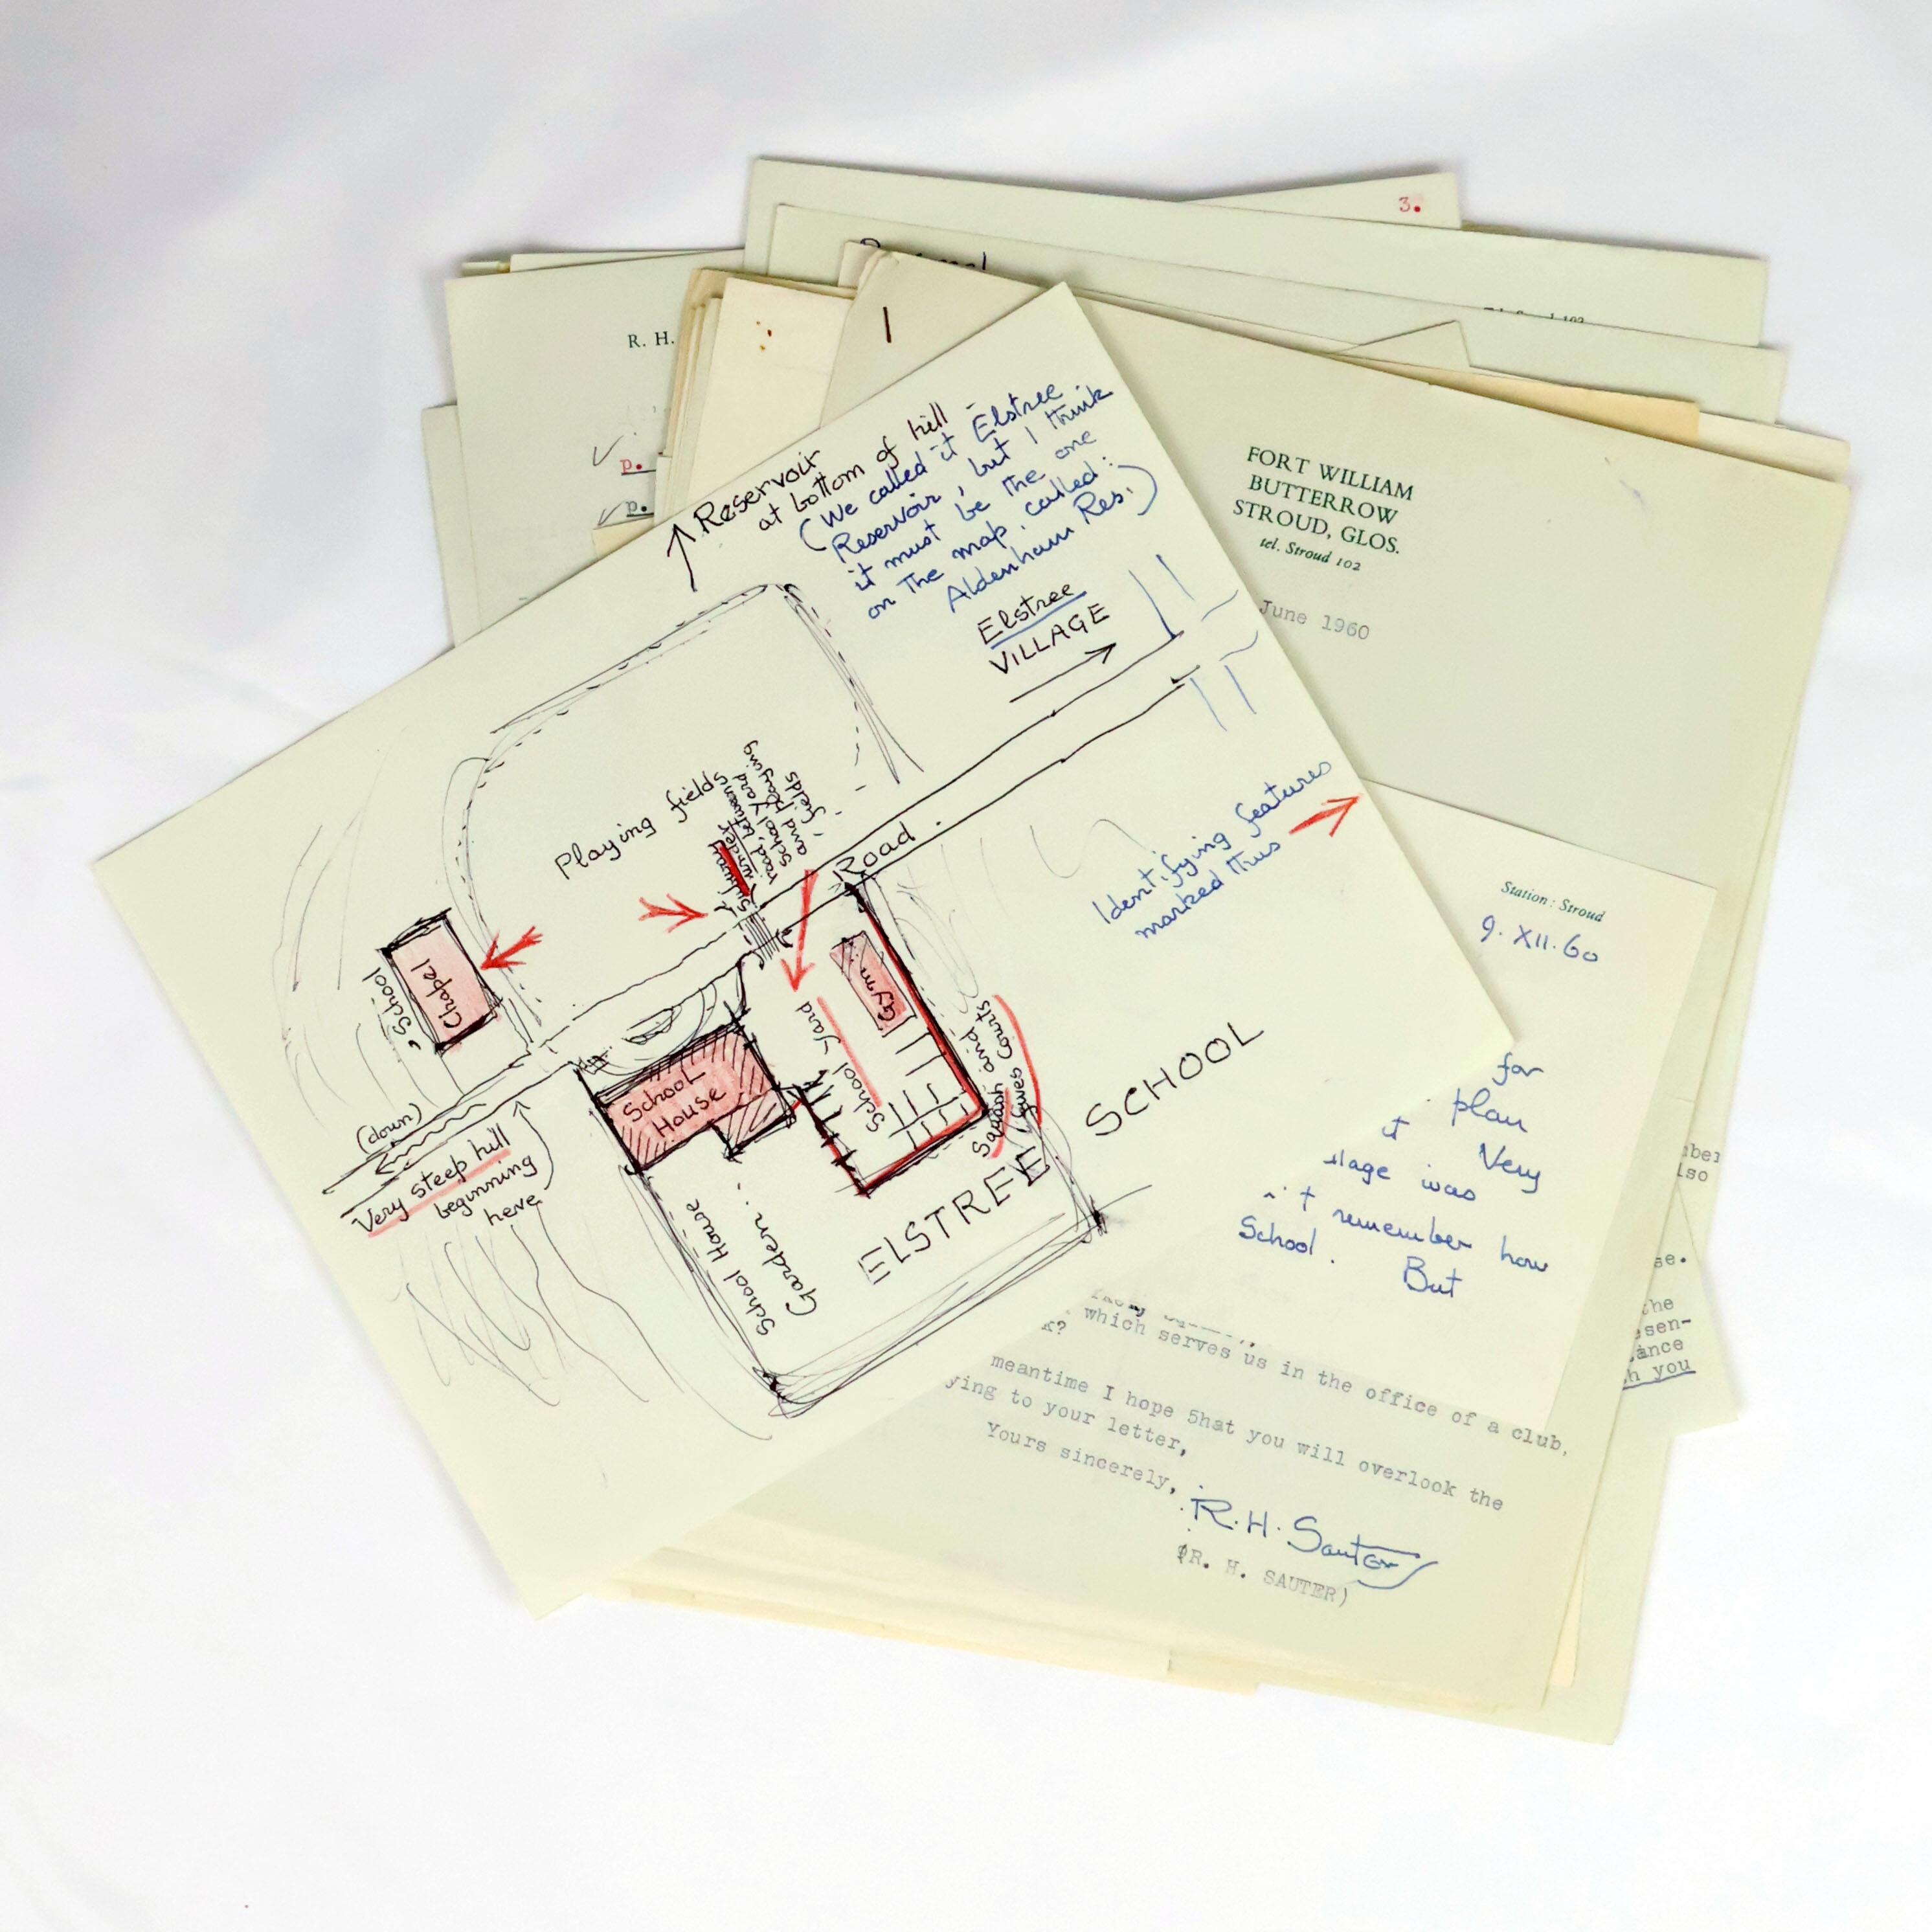 3.
R. H.
p.
p.
FORT WILLIAM
BUTTERROW
STROUD, GLOS.
tel. Stroud 102
June 1960
Reservoir
at bottom of hill
(We called it Elstree
Reservoir, but I think
it must be the one
on the map called:
Aldenham Res.)
Elstree
VILLAGE
Playing fields
Subway
under
road between
School Yard
and playing
fields
Road.
Identifying features
marked thus
School
Chapel
School
House
School Yard
Gym
Squash and
fives Courts
(down)
Very steep hill
beginning
here
School House
Garden
ELSTREE SCHOOL
Station: Stroud
9. XII. 60
for
plan
it Very
was
remember how
School. But
lso
se.
the
esen-
ance
h you
which serves us in the office of a club,
k?
meantime I hope 5hat you will overlook the
ying to your letter,
Yours sincerely,
R. H. Sauter
(R. H. SAUTER)